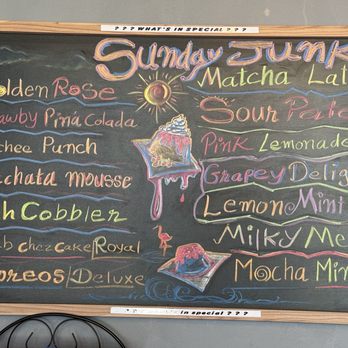 ? ? ? WHAT'S IN SPECIAL ? ? ?
Sunday Junk
olden Rose
awby Pina Colada
chee Punch
chata mousse
h Cobbler
b chezcake/Royal
oreos/Deluxe
Matcha Lat
Sour Patc
Pink Lemonade
Grapey Delig
Lemon Mint
Milky Me
Mocha Min
in special ? ? ?